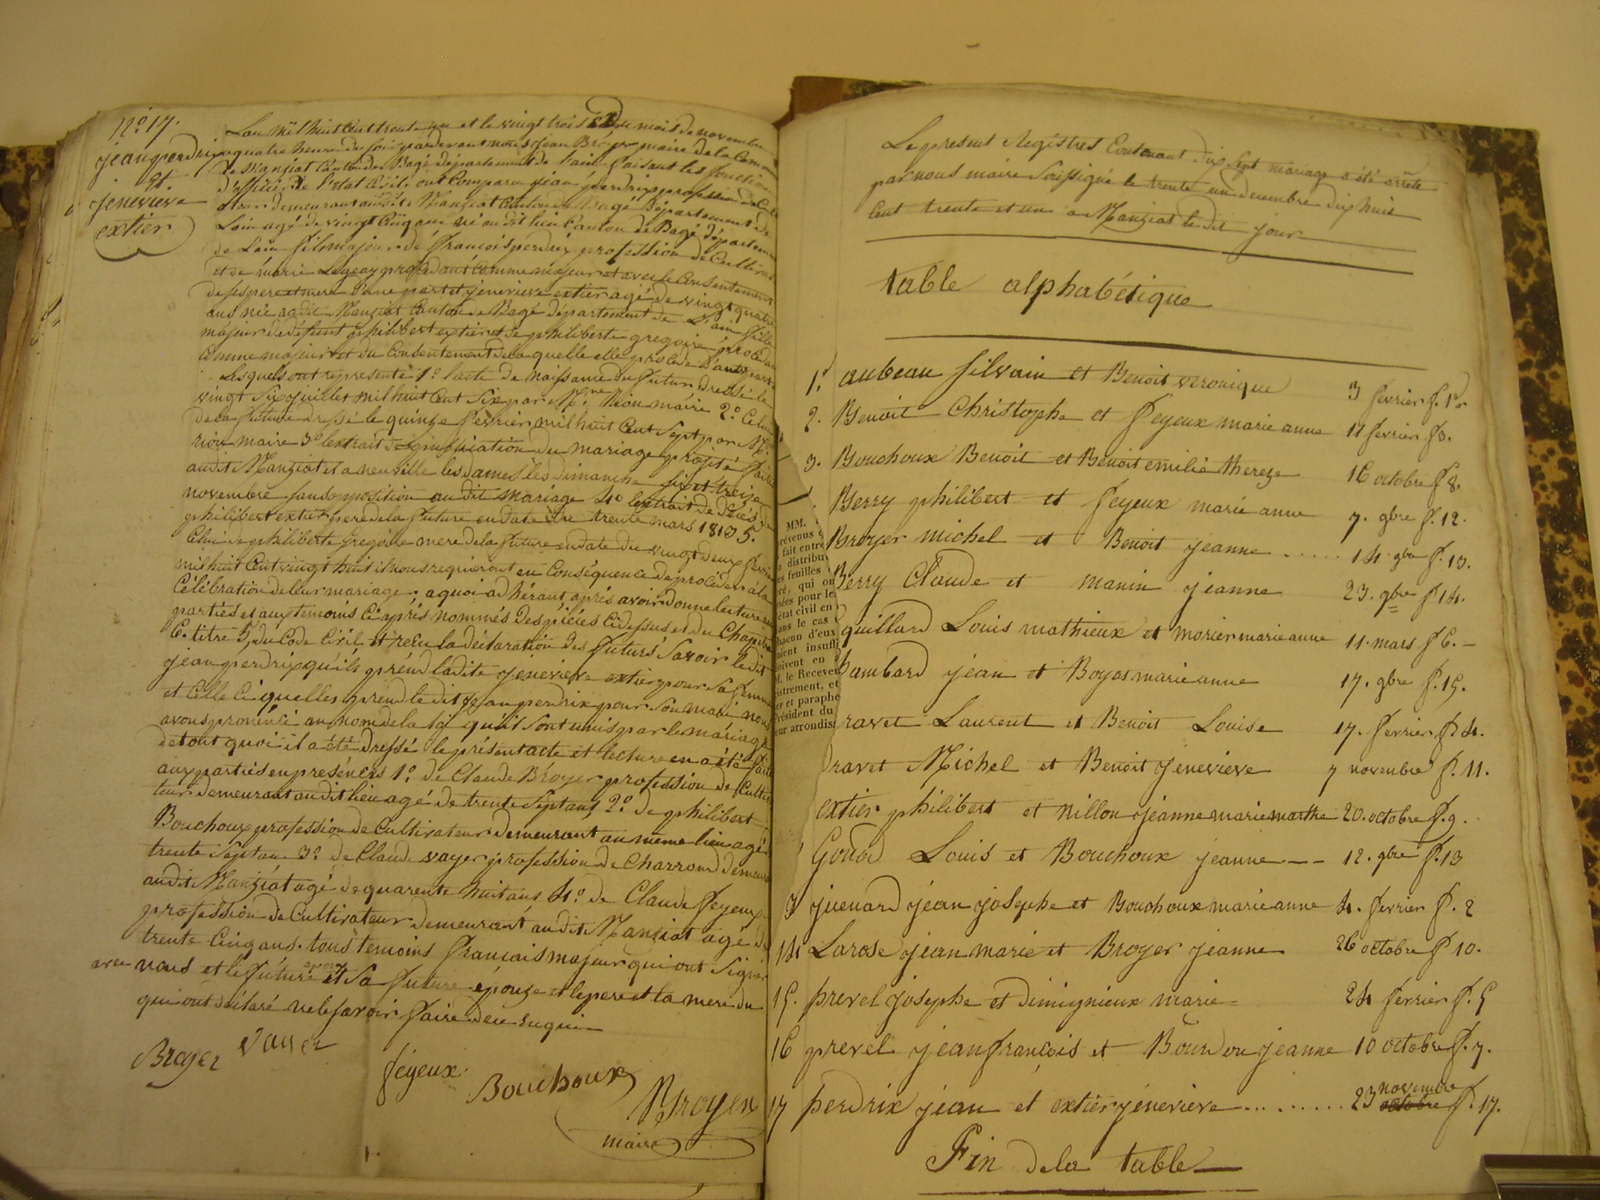 n.o 17.
jean perdrix
et
jenevieve
extier
L'an mil huit cent trente un et le vingt trois du mois de novembre
a quatre heure du soir par devant nous jean Broyer maire de la Commune
de Manziat Canton de Bagé département de l'ain faisant les fonctions
d'officier de l'etat Civil ont Comparu jean perdrix profession de Culti
vateur demeurant audit Manziat Canton de Bagé département de
Lain agé de vingt Cinq ans né audit lieu Canton de Bagé département
de Lain fils majeur de françois perdrix profession de Cultiva
et de marie procédant Comme majeur et avec le Consentement
de ses pere et mere d'une part et jenevieve extier agé de vingt quatre
ans née audit Manziat Canton de Bagé département de L'ain fille
majeur de defunt philibert extier et de philiberte gregoire procedant
Comme majeur et du Consentement de la quelle elle procede d'autre part
Lesquels ont representé 1.o l'acte de naissance du futur dressé le
vingt six juillet mil huit Cent Six par Mr. Nion maire 2.o Celui
de la future dressé le quinze fevrier mil huit Cent Sept par Mr.
nion maire 3.o lextrait de publication du mariage projeté faite
audit Manziat et a neuville les dames les dimanche six et treize
novembre sans opposition au dit mariage 4.o lextrait de décès de
philibert extier pere de la future en date du trente mars 1813 5.o
Celui de philiberte gregoire mere de la future en date du vingt deux
mil huit Cent vingt huit ils nous requierent en Conséquence de proceder a la
Célébration de leur mariage; a quoi adhérant après avoir donné lecture aux
parties et aux temoins Ci après nommés des pièces Cidessus et du Chapitre
6. titre 5, du Code Civil et reçu la déclaration des futurs Savoir ledit
jean perdrix qu'ils prend ladite jenevieve extier pour Sa femme
et Celle Ci quelles prend le dit jean perdrix pour Son mari nous
avons prononcé au nom de la loi qu'ils Sont unis par le mariage
de tout quoi il a été dressé le présent acte et lecture en a été faite
aux parties en presences 1.o de Claude Broyer profession de Cultiva
teur demeurant audit lieu agé de trente Sept ans 2.o de philibert
Bouchoux profession de Cultivateur demeurant au meme lieu agé
trente Sept ans 3.o de Claude vayer profession de Charron demeurant
audit Manziat agé de quarente huit ans 4.o de Claude feyeux
profession de Cultivateur demeurant audit Manziat agé de
trente Cinq ans. tous temoins français majeur qui ont Signé
avec nous et le futur epoux et Sa future épouze et le pere et la mere du
qui ont déclaré ne le savoir faire de ce enquis
Broyer vayer
feyeux.
Bouchoux
Broyer
maire
Le present Registres Contenant dix Sept mariage a été arrêté
par nous maire Soussigné le trente un decembre dix huit
Cent trente et un a Manziat le dit jour
table alphabétique
1. aubeau silvain et Benoit veronique 3 fevrier f. 1er
2. Benoit Christophe et feyeux marie anne 11 fevrier f. 3.
3. Bouchoux Benoit et Benoit emilie thereze 16 octobre f. 8.
Berry philibert et feyeux marie anne 7. 9bre f. 12.
Broyer michel et Benoit jeanne ..... 14. 9bre f. 13.
Berry Claude et manin jeanne 23. 9bre f. 14.
guillard Louis mathieux et morier marie anne 11. mars f. 6. –
hambard jean et Boyas marie anne 17. 9bre f. 15.
ravet Laurent et Benoit Louise 17. fevrier f. 4.
Dravet Michel et Benoit jenevieve 7 novembre f. 11.
extier philibert et nillon jeanne marie marthe 20. octobre f. 9.
Godard Louis et Bouchoux jeanne – – 12. 9bre f. 13
3 juenard jean josephe et Bouchoux marie anne 4. fevrier f. 2
14 Larose jean marie et Broyer jeanne 26 octobre f. 10.
15. prevel josephe et dimignieux marie 24 fevrier f. 5
16 prevel jean françois et Bourdon jeanne 10 octobre f. 7.
17 perdrix jean et extier jenevieve .......... 23 novembre octobre f. 17.
Fin de la table
MM.
prévenus
fait entre
distribu
es feuilles
ré, qui on
ées pour le
état civil en
ans le cas
hacun d'eux
aient insuffi
oivent en
M. le Receveu
utrement, et
er et paraphe
résident du
eur arrondiss